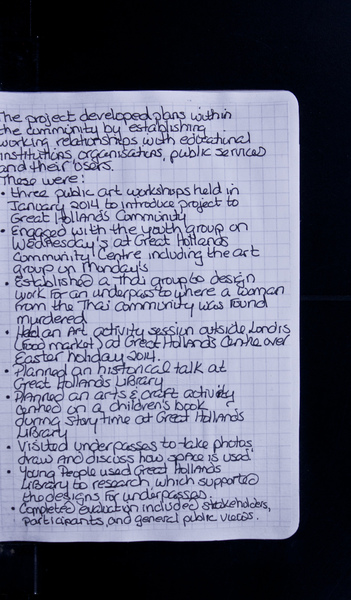 The project developed plans within
the community by establishing
working relationships with educational
institutions, organisations, public services
and their users.
These were:
• three public art workshops held in
January 2014 to introduce project to
Great Hollands Community
• Engaged with the youth group on
Wednesday's at Great Hollands
Community Centre including the art
group on Monday's
• Established a Thai group to design
work for an underpass to where a woman
from the Thai community was found
murdered
• Had an Art activity session outside Londis
(food market) at Great Hollands Centre over
Easter holiday 2014.
• Planned an historical talk at
Great Hollands Library
• Planned an arts & craft activity
centred on a children's book
during story time at Great Hollands
Library
• Visited underpasses to take photos
draw and discuss how space is used.
• Young People used Great Hollands
Library to research, which supported
the designs for underpasses.
• Completed evaluation included stakeholders,
participants, and general public views.